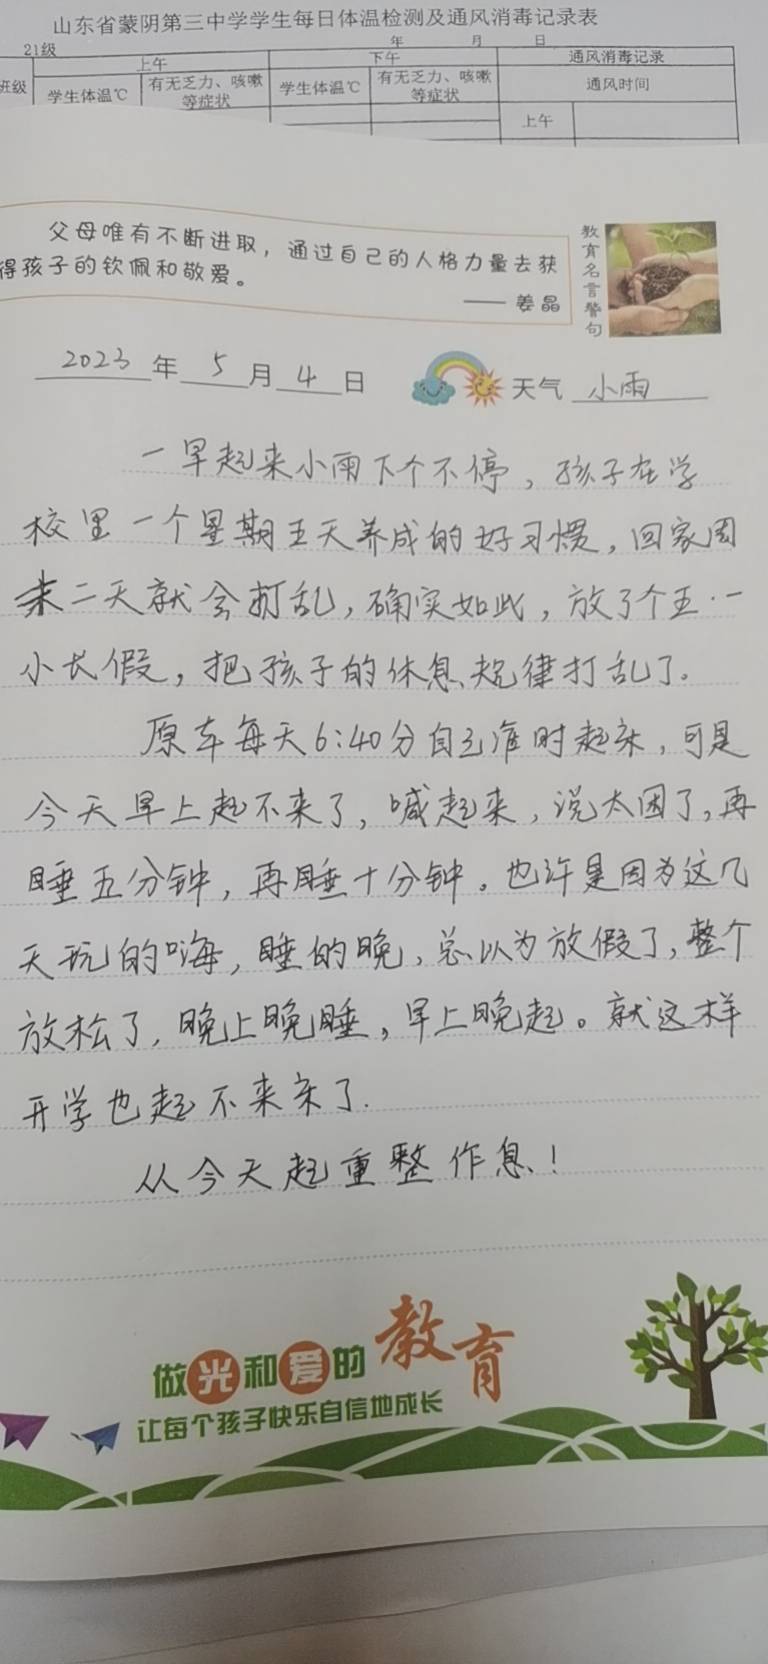 山东省蒙阴第三中学学生每日体温检测及通风消毒记录表
21级 年 月 日
班级 上午 下午 通风消毒记录
学生体温℃ 有无乏力、咳嗽等症状 学生体温℃ 有无乏力、咳嗽等症状 通风时间
上午
父母唯有不断进取，通过自己的人格力量去获
得孩子的钦佩和敬爱。
—— 姜晶
教育名言警句
2023年5月4日 天气 小雨
一早起来小雨下个不停，孩子在学
校里一个星期五天养成的好习惯，回家周
末二天就会打乱，确实如此，放了个五·一
小长假，把孩子的休息规律打乱了。
原本每天6:40分自己准时起床，可是
今天早上起不来了，喊起来，说太困了，再
睡五分钟，再睡十分钟。也许是因为这几
天玩的嗨，睡的晚，总以为放假了，整个
放松了，晚上晚睡，早上晚起。就这样
开学也起不来床了.
从今天起重整作息！
做光和爱的教育
让每个孩子快乐自信地成长